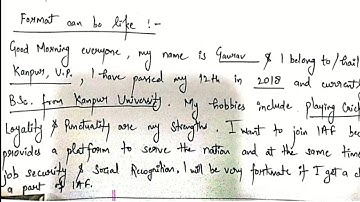 Format can be like :-
Good Morning everyone, my name is Gaurav & I belong to/hail
Kanpur, U.P., I have passed my 12th in 2018 and current
B.Sc. from Kanpur University. My hobbies include playing Cric
Loyality & Punctuality are my strengths. I want to join IAF be
provides a platform to serve the nation and at the same time
job security & Social Recognition. I will be very fortunate if I get a c
a part of IAF.